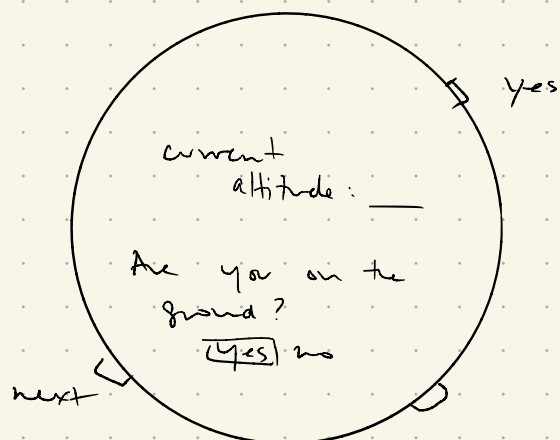 yes
current
altitude: ___
Are you on the
ground?
yes no
next